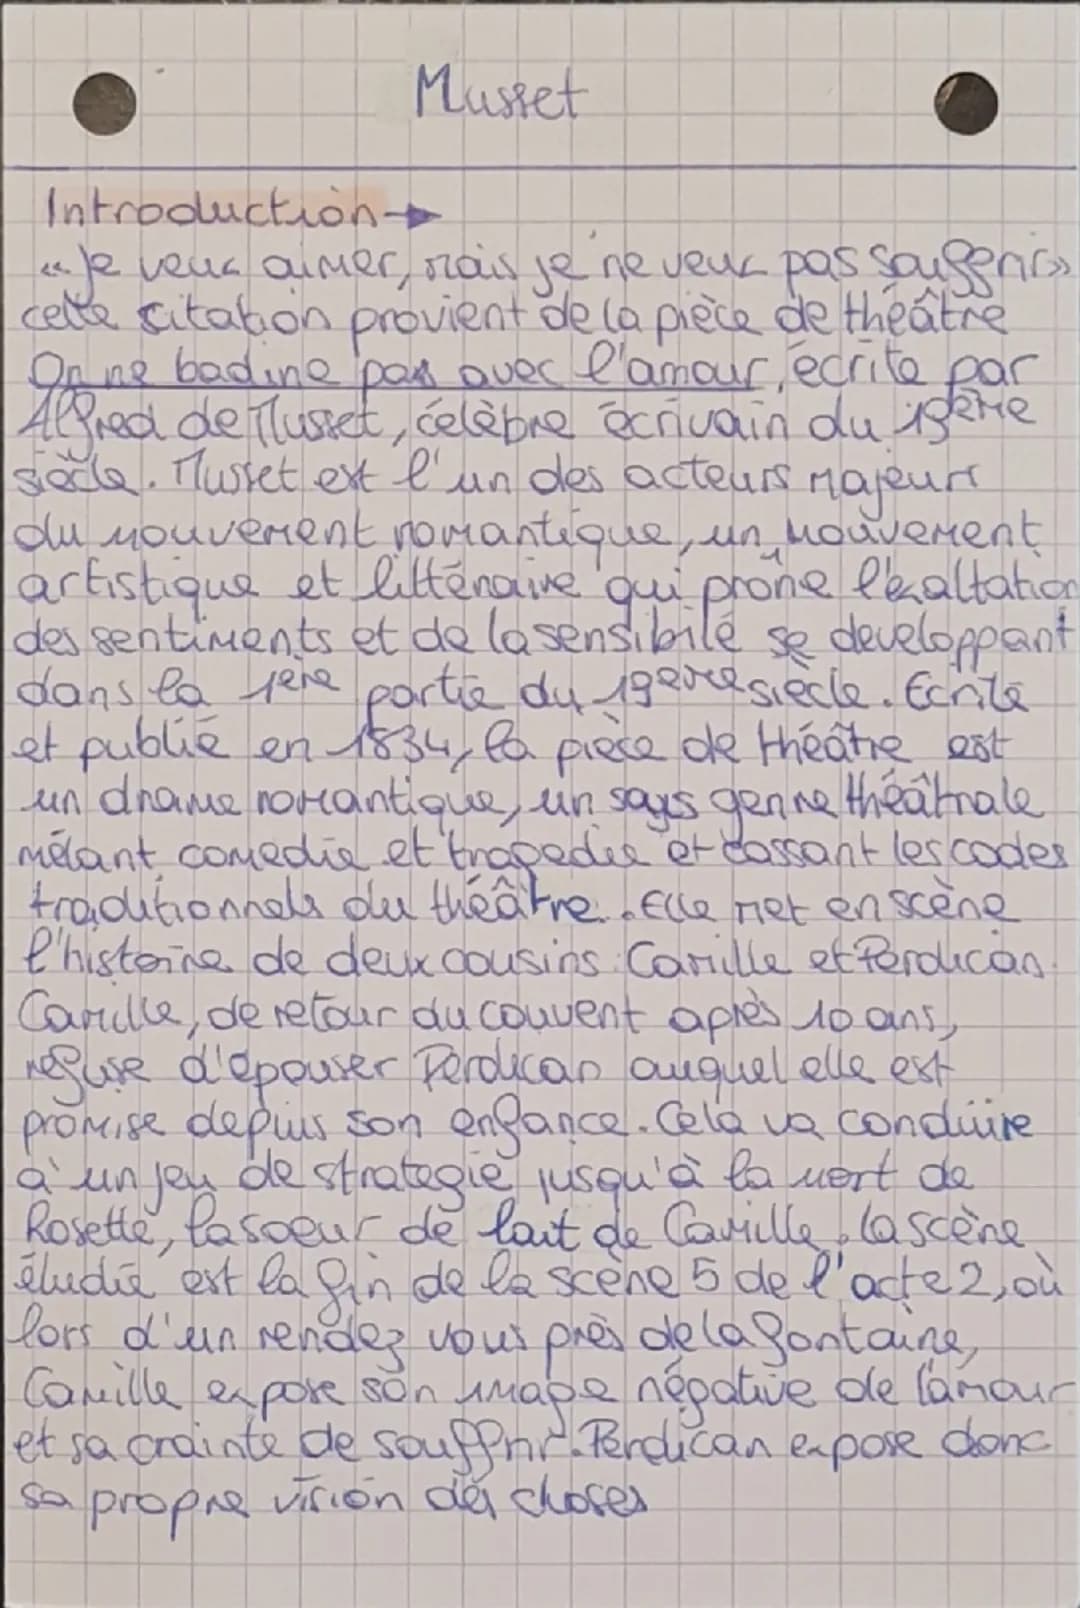 Musset
Introduction →
« Je veux aimer, mais je ne veux pas souffrir »
cette citation provient de la pièce de théâtre
On ne badine pas avec l'amour, écrite par
Alfred de Musset, célèbre écrivain du 19ème
siècle. Musset est l'un des acteurs majeurs
du mouvement romantique, un mouvement
artistique et litténaire qui prône l'exaltation
des sentiments et de la sensibilé se developpant
dans la 1ère partie du 19ème siècle. Ecrite
et publié en 1834, la pièce de théâtre est
un drame romantique, un sous genre théâtrale
mêlant comedie et tragedie et cassant les codes
traditionnels du théâtre. Elle met en scène
l'histoire de deux cousins : Camille et Perdican.
Camille, de retour du couvent après 10 ans,
refuse d'épouser Perdican auquel elle est
promise depuis son enfance. Cela va conduire
à un jeu de strategie jusqu'à la mort de
Rosette, la soeur de lait de Camille. La scène
étudié est la fin de la scène 5 de l'acte 2, où
lors d'un rendez vous près de la fontaine,
Camille expose son image négative de l'amour
et sa crainte de souffrir. Perdican expose donc
sa propre vision des choses